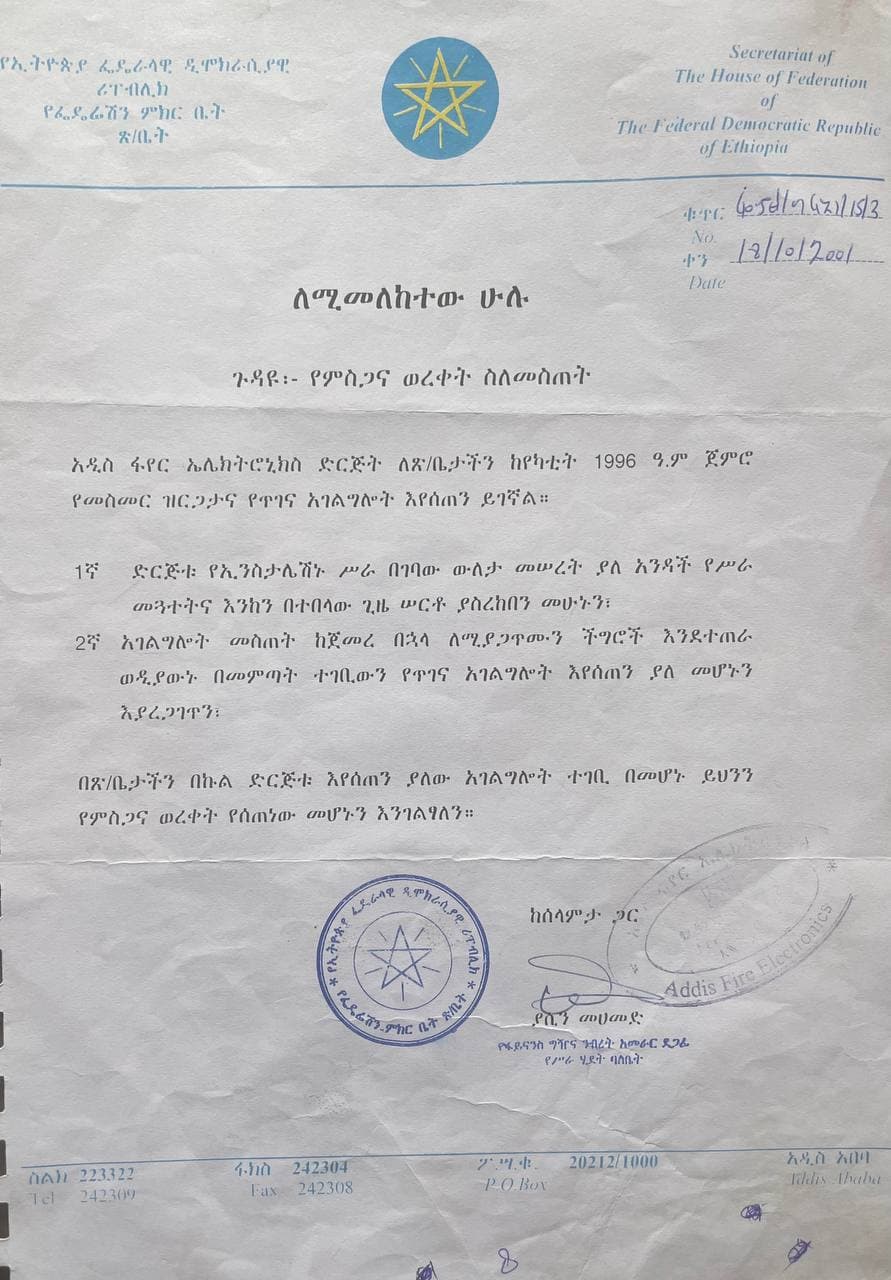 የኢትዮጵያ ፌዴራላዊ ዲሞክራሲያዊ
ሪፐብሊክ
የፌዴሬሽን ምክር ቤት
ጽ/ቤት
Secretariat of
The House of Federation
of
The Federal Democratic Republic
of Ethiopia
ቁጥር
No.
ቀን 18/10/2001
Date
ለሚመለከተው ሁሉ
ጉዳዩ፡- የምስጋና ወረቀት ስለመስጠት
አዲስ ፋየር ኤሌክትሮኒክስ ድርጅት ለጽ/ቤታችን ከየካቲት 1996 ዓ.ም ጀምሮ
የመስመር ዝርጋታና የጥገና አገልግሎት እየሰጠን ይገኛል።
1ኛ ድርጅቱ የኢንስታሌሽኑ ሥራ በገባው ውለታ መሠረት ያለ አንዳች የሥራ
መጓተትና እንከን በተበላው ጊዜ ሠርቶ ያስረከበን መሁኑን፣
2ኛ አገልግሎት መስጠት ከጀመረ በኋላ ለሚያጋጥሙን ችግሮች እንደተጠራ
ወዲያውኑ በመምጣት ተገቢውን የጥገና አገልግሎት እየሰጠን ያለ መሆኑን
እያረጋገጥን፣
በጽ/ቤታችን በኩል ድርጅቱ እየሰጠን ያለው አገልግሎት ተገቢ በመሆኑ ይህንን
የምስጋና ወረቀት የሰጠነው መሆኑን እንገልፃለን።
ከሰላምታ ጋር
የኢትዮጵያ ፌዴራላዊ ዲሞክራሲያዊ ሪፐብሊክ
የፌዴሬሽን ምክር ቤት ጽ/ቤት
Addis Fire Electronics
ያሲን መሀመድ
የፋይናንስ ግዥና ንብረት አመራር ደጋፊ
የሥራ ሂደት ባለቤት
ስልክ 223322 ፋክስ 242304 ፖ.ሣ.ቁ. 20212/1000 አዲስ አበባ
Tel 242309 Fax 242308 P.O.Box Addis Ababa
8